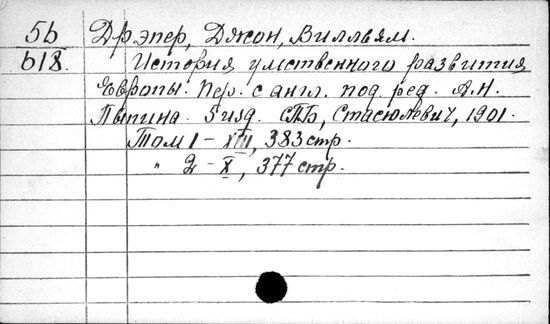 5б Дрэпер, Джон, Вилльям.
618. История умственного развития
Европы. Пер. с англ. под ред. А.Н.
Пыпина. 5 изд. СПБ, Стасюлевич, 1901.
Том 1 - XIII, 383 стр.
" 2 - X, 377 стр.